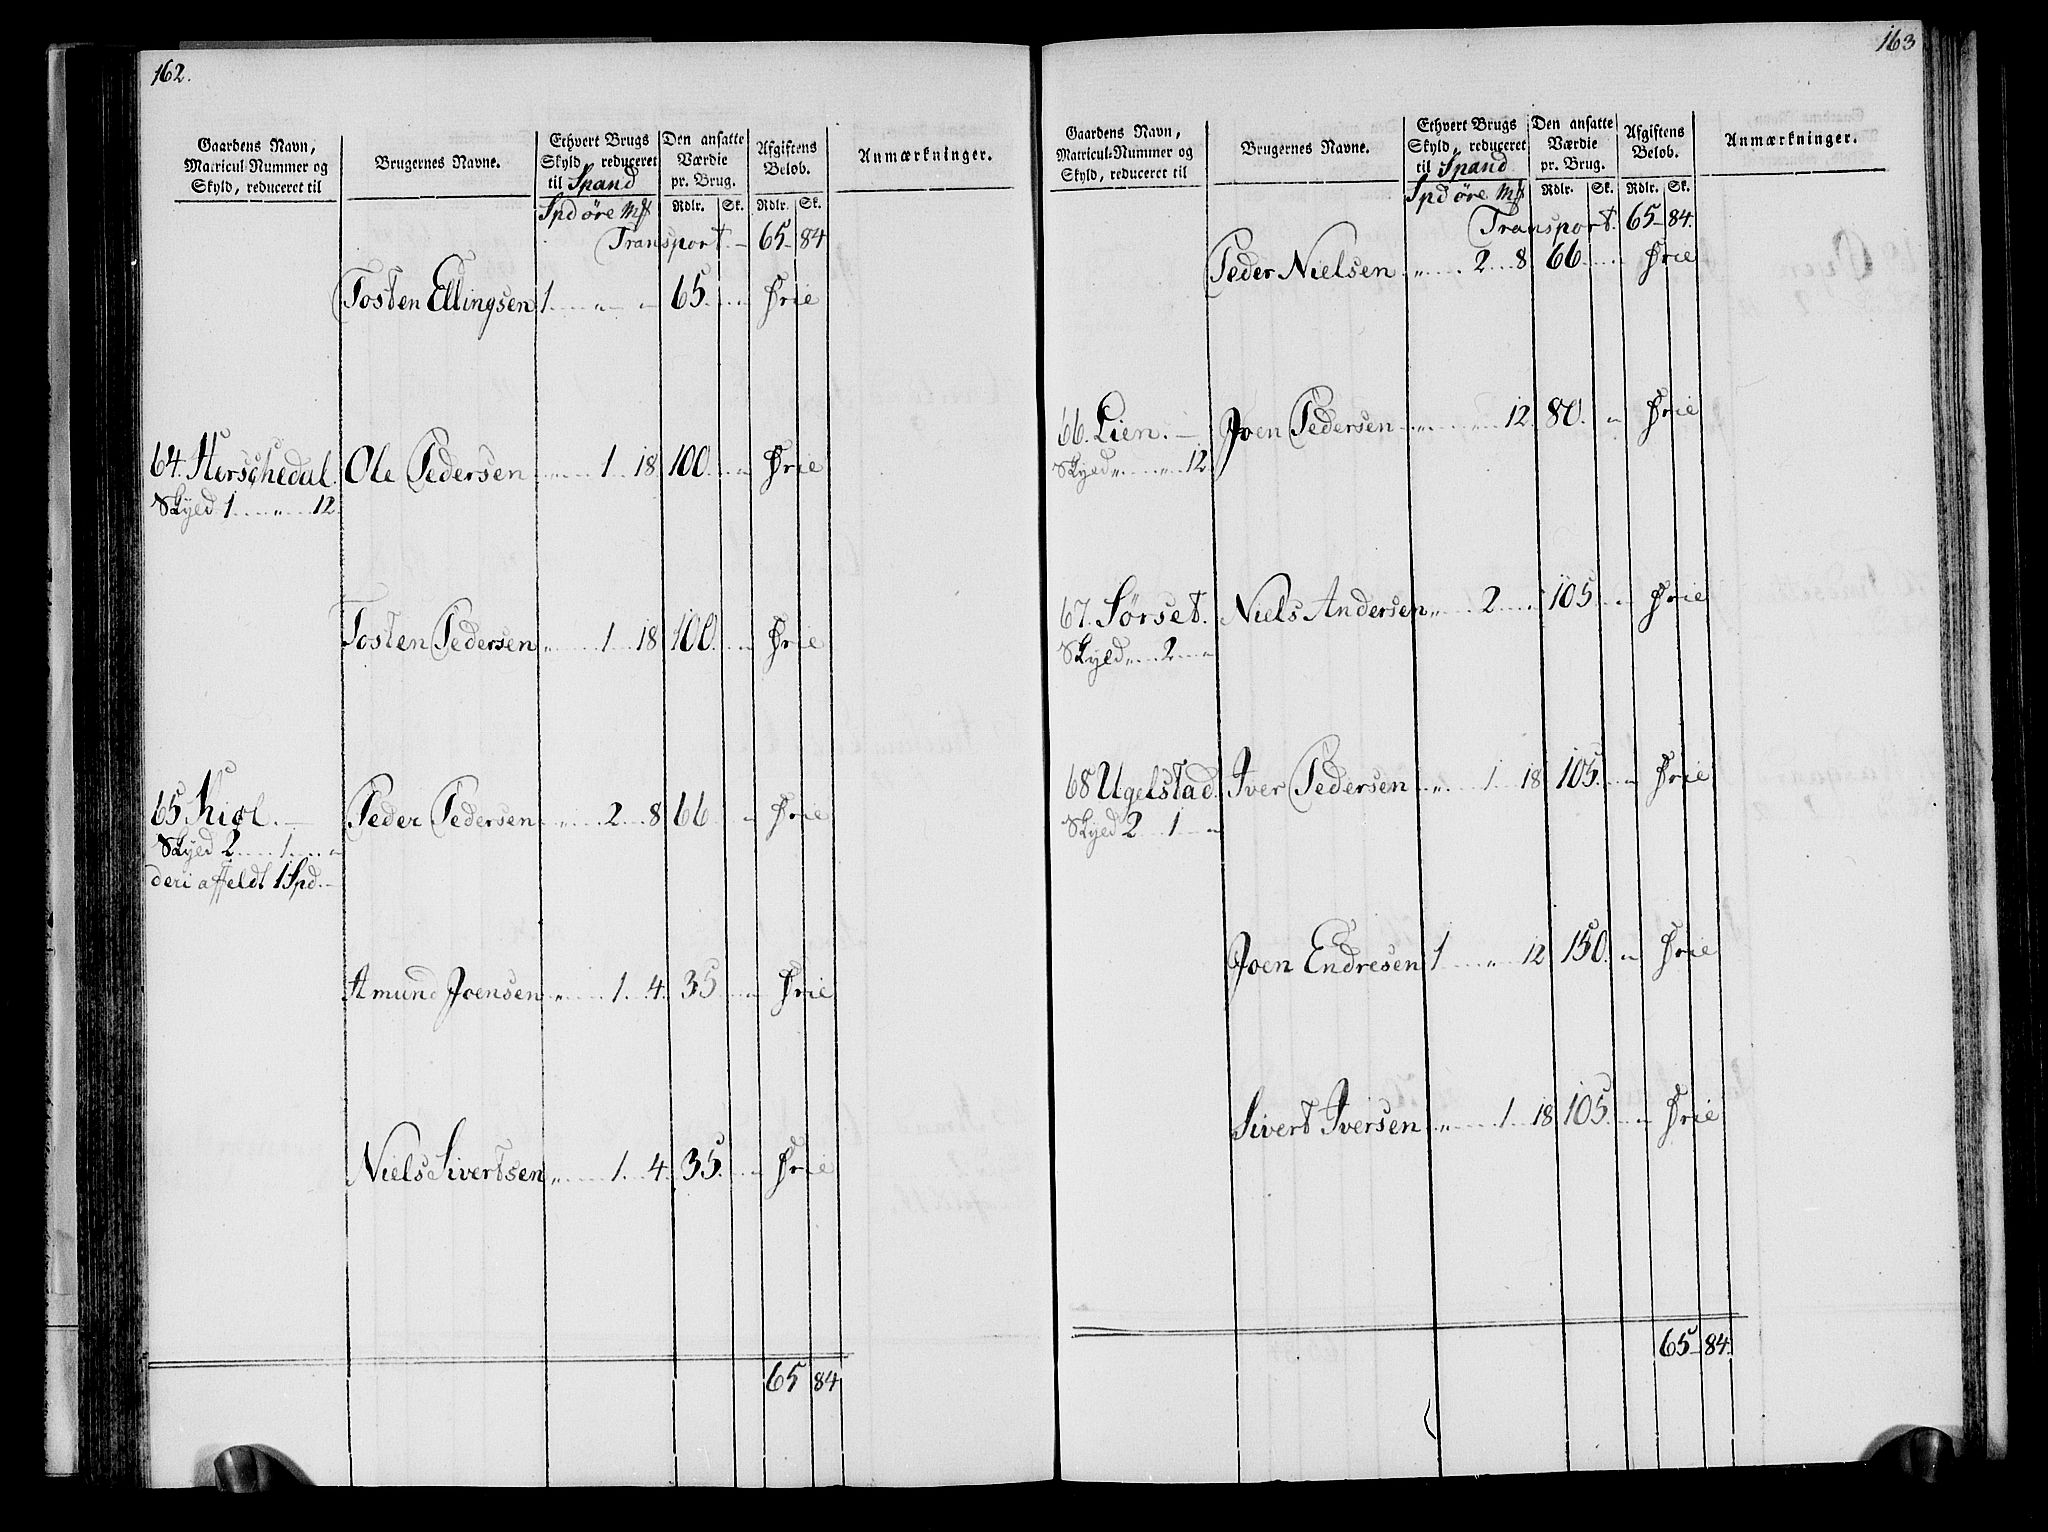 162.
Gaardens Navn, Matricul-Nummer og Skyld, reduceret til | Brugernes Navne. | Ethvert Brugs Skyld, reduceret til Spand | Den ansatte Værdie pr. Brug. | Afgiftens Beløb. | Anmærkninger.
Spd øre | Rdlr. | Sk. | Rdlr. | Sk.
Transport. — 65 — 84
Tosten Ellingsen 1 „ „ 65 „ Frie
64. Herschedal. Ole Pedersen „ 1 18 100 „ Frie
Skyld 1 „ 12
Tosten Pedersen „ 1 18 100 „ Frie
65 Kiøl. — Peder Pedersen „ 2 8 66 „ Frie
Skyld 2 1 „
deri affeldt 1 Spd. —
Amund Joensen „ 1 4 35 „ Frie
Niels Sivertsen „ 1 4 35 „ Frie
65 84
163
Gaardens Navn, Matricul-Nummer og Skyld, reduceret til | Brugernes Navne. | Ethvert Brugs Skyld, reduceret til Spand | Den ansatte Værdie pr. Brug. | Afgiftens Beløb. | Anmærkninger.
Spd øre | Rdlr. | Sk. | Rdlr. | Sk.
Transport. 65 — 84.
Peder Nielsen „ 2 8 66 „ Frie
66. Lien. — Joen Pedersen „ „ 12 80. „ Frie
Skyld „ „ 12
67. Sørset. Niels Andersen „ 2 „ 105 „ Frie
Skyld „ 2 „
68 Ugelstad. Iver Pedersen „ 1 18 105. „ Frie
Skyld 2 1 „
Joen Endresen 1 „ 12 150. „ Frie
Sivert Iversen „ 1 18 105 „ Frie
65 — 84.